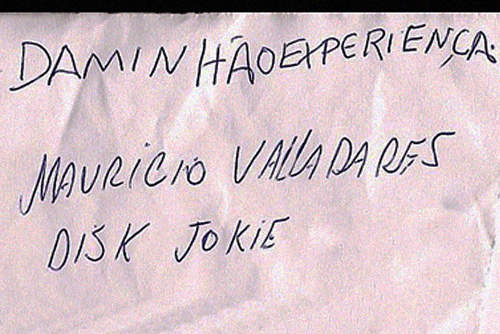 DAMINHÃOEXPERIENÇA.
MAURICIO VALLADARES
DISK JOKIE